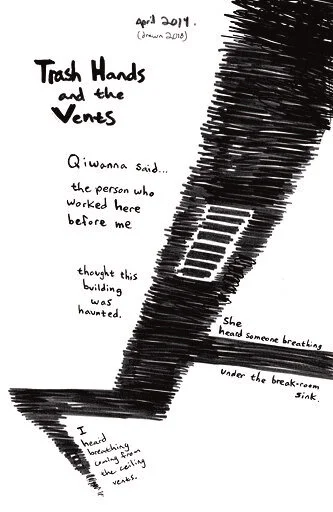 April 2014.
(drawn 2018)
Trash Hands
and the
Vents
Qiwanna said...
the person who
worked here
before me
thought this
building
was
haunted.
She
heard someone breathing
under the break-room
sink.
I
heard
breathing
coming from
the ceiling
vents.